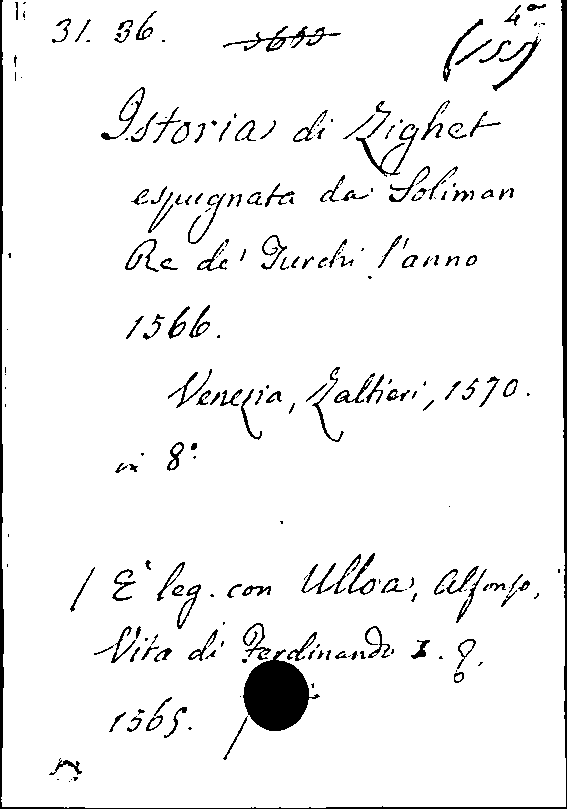 31. 36. 3633 4º
(155)
Istoria di Zighet
espugnata da Soliman
Re de' Turchi l'anno
1566.
Venezia, Zaltieri, 1570.
in 8º
/ E' leg. con Ulloa, Alfonso,
Vita di Ferdinando I.
1565. /